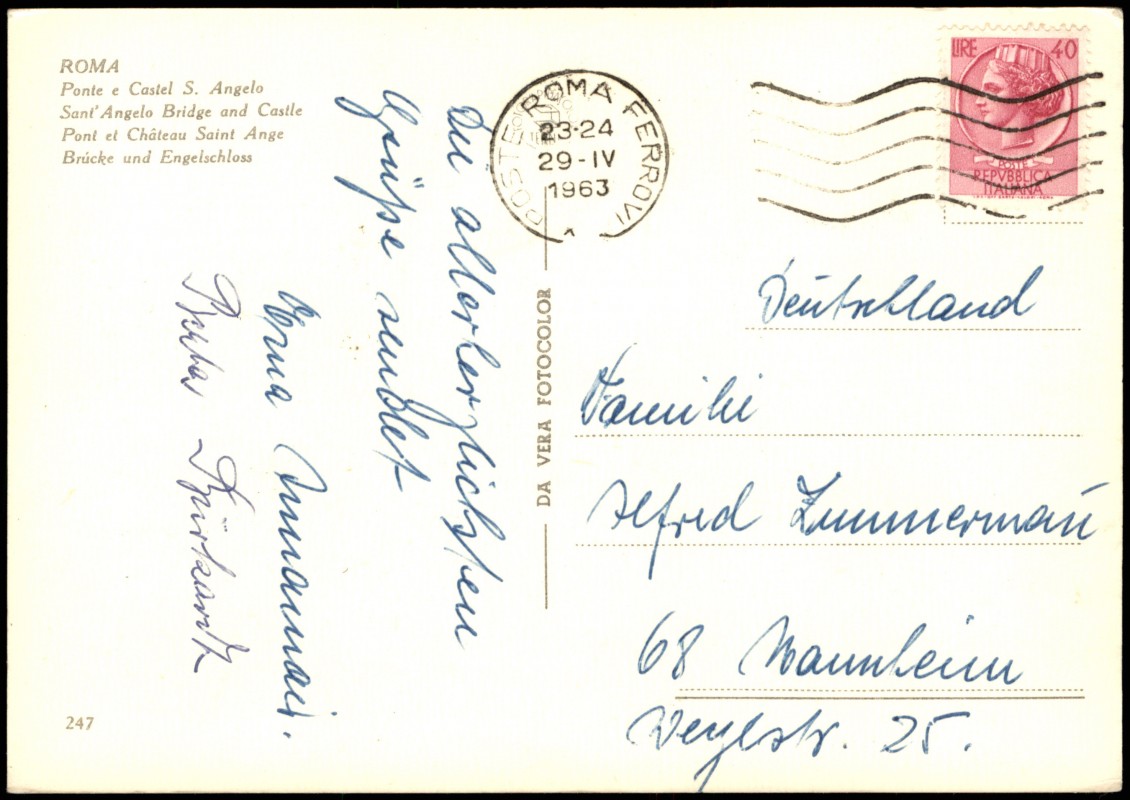 ROMA
Ponte e Castel S. Angelo
Sant'Angelo Bridge and Castle
Pont et Château Saint Ange
Brücke und Engelschloss
Die allerherzlichsten
Grüße sendet
Erna
Berta
247
DA VERA FOTOCOLOR
POSTE ROMA FERROVIA
23-24
29-IV
1963
LIRE 40
POSTE
REPVBBLICA
ITALIANA
Deutschland
Familie
Alfred Zimmermann
68 Mannheim
25.